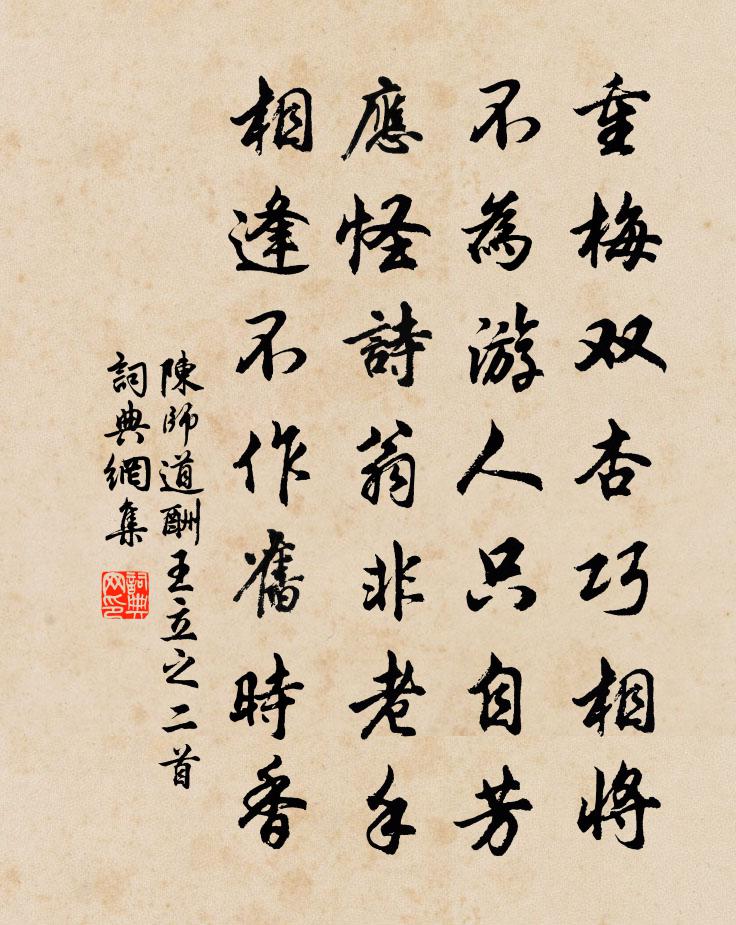 重梅双杏巧相將
不為游人只自芳
應怪詩翁非老手
相逢不作舊時香
陳師道酬王立之二首
詞典網集
詞典网印